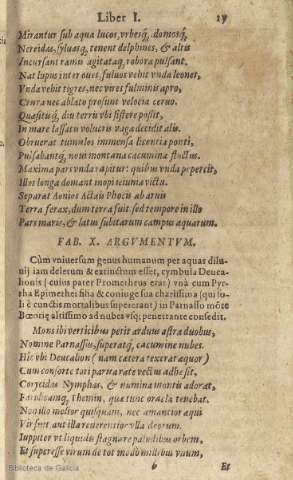 Liber I. 19
Mirantur sub aqua lucos, vrbesq́, domosq́,
Nereides, syluasq́, tenent delphines, & altis
Incursant ramis agitataq́, robora pulsant.
Nat lupus inter oues, fuluos vehit vnda leones,
Vnda vehit tigres, nec vires fulminis apro,
Crura nec ablato prosunt velocia ceruo.
Quæsitisq́, diu terris vbi sistere possit,
In mare lassatis volucris vaga decidit alis.
Obruerat tumulos immensa licentia ponti,
Pulsabantq́, noui montana cacumina fluctus.
Maxima pars vnda rapitur: quibus vnda pepercit,
Illos longa domant inopi ieiunia victu.
Separat Aonios Actæis Phocis ab aruis
Terra ferax, dum terra fuit: sed tempore in illo
Pars maris, & latus subitarum campus aquarum.
FAB. X. ARGVMENTVM.
Cùm vniuersum genus humanum per aquas dilu-
uij iam deletum & extinctum esset, cymbula Deuca-
lionis (cuius pater Prometheus erat) vnà cum Pyr-
rha Epimethei filia & coniuge sua charissima (qui so-
li è cunctis mortalibus supererant) in Parnasso mõte
Bœotię altissimo ad nubes vsq; penetrante consedit.
Mons ibi verticibus petit arduus astra duobus,
Nomine Parnassus, superatq́, cacumine nubes.
Hic vbi Deucalion (nam cætera texerat æquor)
Cum consorte tori parua rate vectus adhesit,
Corycidas Nymphas, & numina montis adorat,
Fatidicamq́, Themin, quæ tunc oracla tenebat.
Non illo melior quisquam, nec amantior æqui
Vir fuit, aut illa reuerentior vlla deorum.
Iuppiter vt liquidis stagnare paludibus orbem,
Et superesse virum de tot modò millibus vnum,
b Et
Biblioteca de Galicia